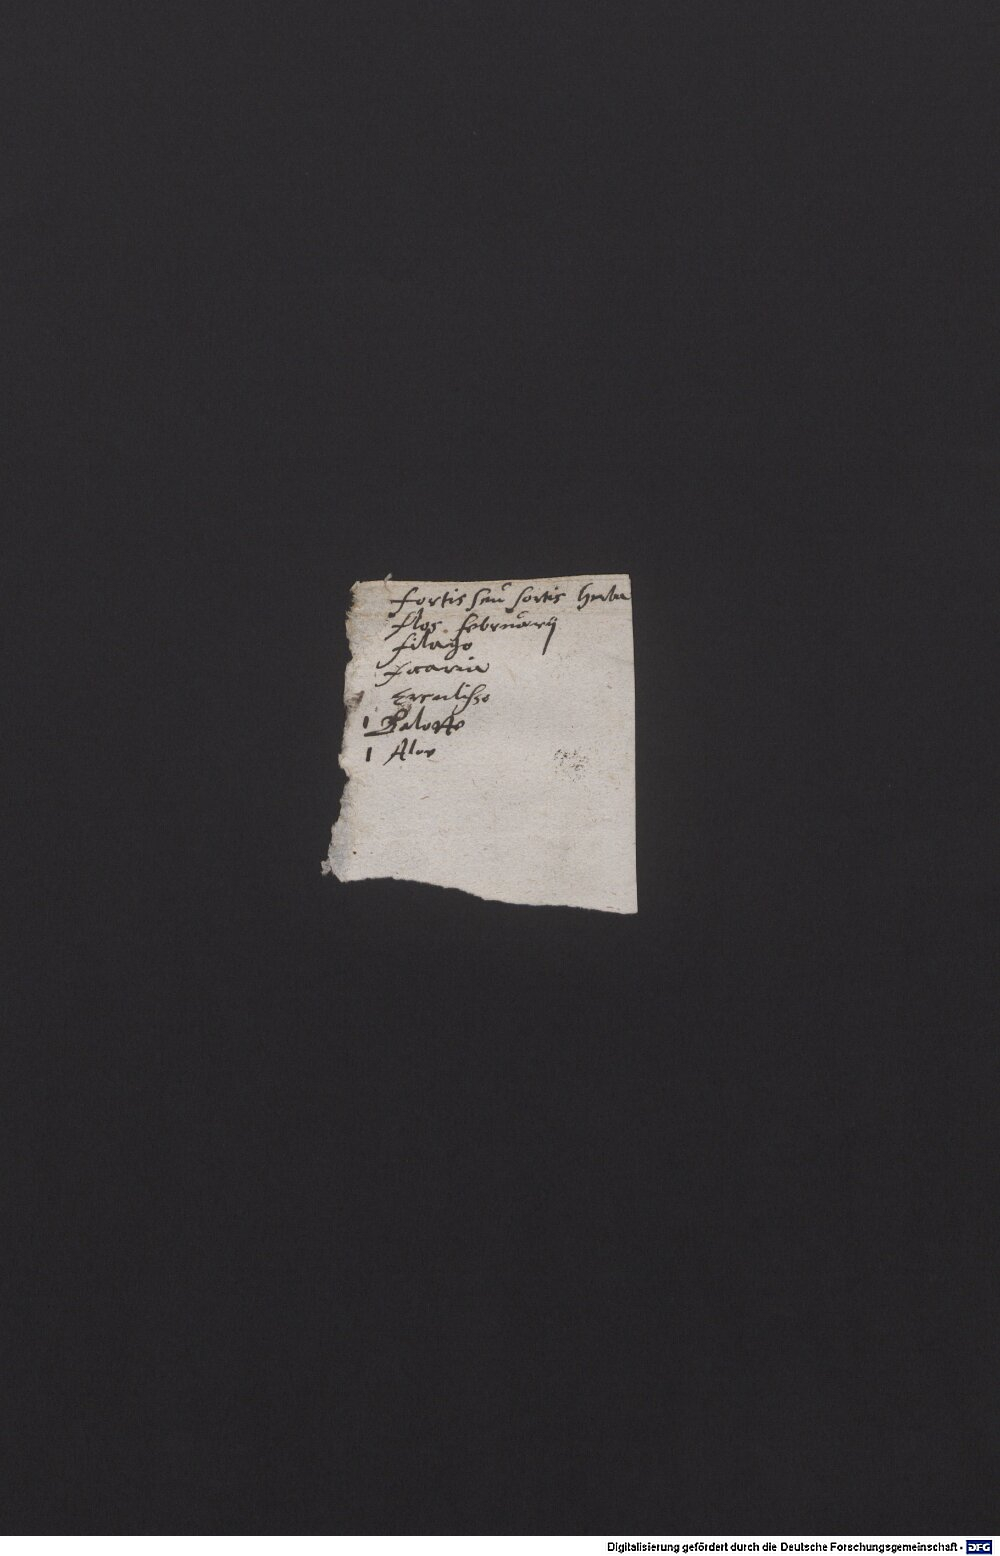 fortis seu sortis herba
flos februarij
filago
ficaria
1 Balotte
1 Aloe
Digitalisierung gefördert durch die Deutsche Forschungsgemeinschaft - DFG